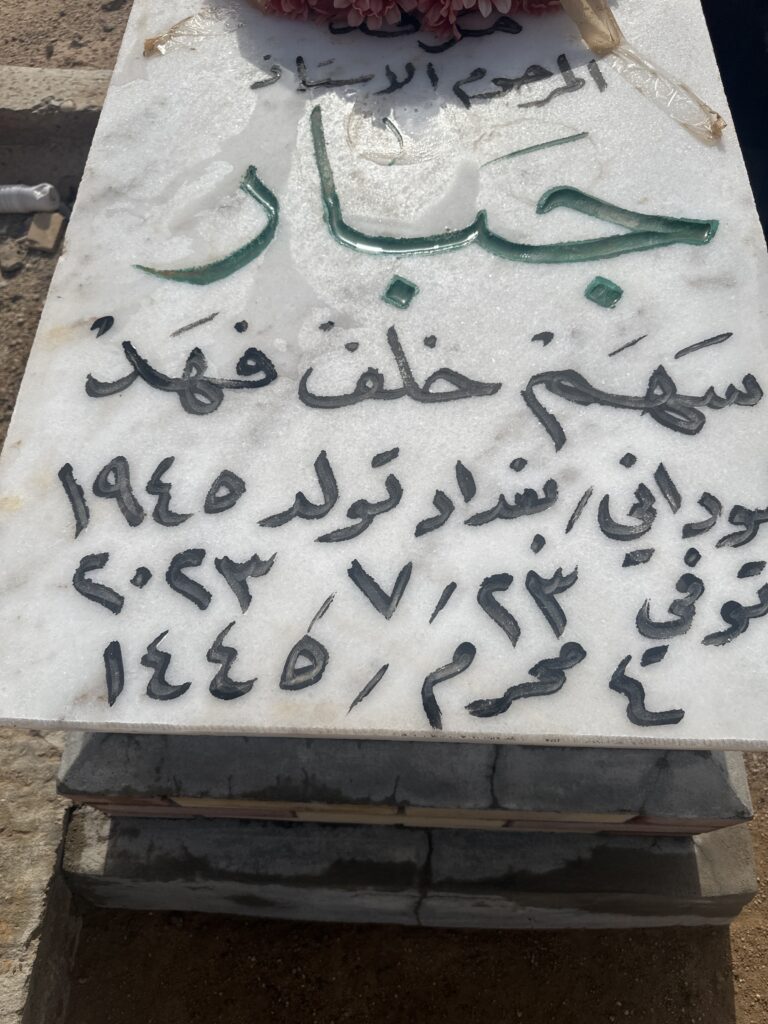 مرقد
المرحوم الاستاذ
جَبار
سَهَم خلف فَهَد
سوداني / بغداد تولد ١٩٤٥
توفي ٢٣ / ٧ / ٢٠٢٣
٤ محرم / ١٤٤٥